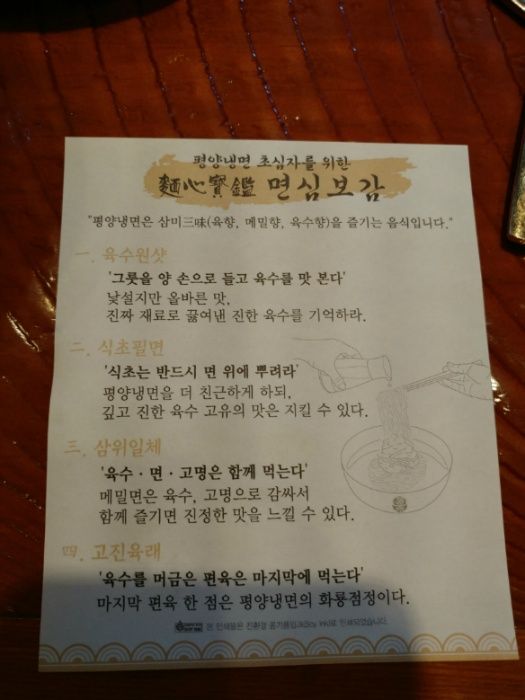 평양냉면 초심자를 위한
麵心寶鑑 면심보감
"평양냉면은 삼미三味(육향, 메밀향, 육수향)을 즐기는 음식입니다."
一. 육수원샷
'그릇을 양 손으로 들고 육수를 맛 본다'
낯설지만 올바른 맛,
진짜 재료로 끓여낸 진한 육수를 기억하라.
二. 식초필면
'식초는 반드시 면 위에 뿌려라'
평양냉면을 더 친근하게 하되,
깊고 진한 육수 고유의 맛은 지킬 수 있다.
三. 삼위일체
'육수 · 면 · 고명은 함께 먹는다'
메밀면은 육수, 고명으로 감싸서
함께 즐기면 진정한 맛을 느낄 수 있다.
四. 고진육래
'육수를 머금은 편육은 마지막에 먹는다'
마지막 편육 한 점은 평양냉면의 화룡점정이다.
본 인쇄물은 친환경 콩기름잉크(Soy Ink)로 인쇄되었습니다.